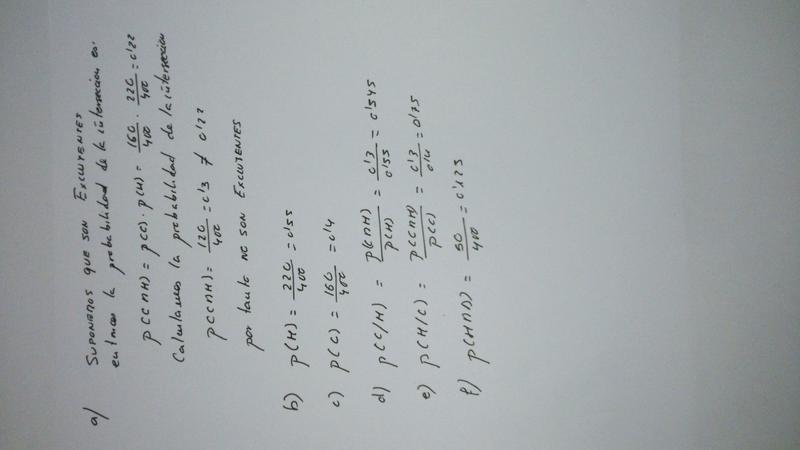 a) SUPONEMOS QUE SON EXCLUYENTES
entonces la probabilidad de la interseccion es:
P(C∩H) = P(C) · P(H) = 160/400 · 220/400 = 0'22
Calculamos la probabilidad de la interseccion
P(C∩H) = 120/400 = 0'3 ≠ 0'22
por tanto NO SON EXCLUYENTES
b) P(H) = 220/400 = 0'55
c) P(C) = 160/400 = 0'4
d) P(C/H) = P(C∩H)/P(H) = 0'3/0'55 = 0'545
e) P(H/C) = P(C∩H)/P(C) = 0'3/0'4 = 0'75
f) P(H∩D) = 50/400 = 0'125